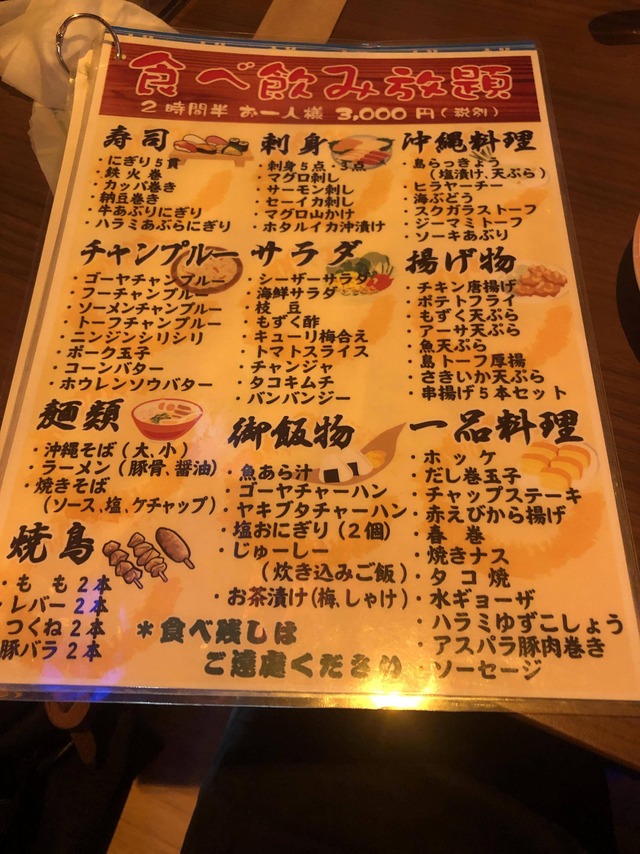 食べ飲み放題
2時間半 お一人様 3,000円(税別)
寿司
・にぎり5貫
・鉄火巻
・カッパ巻き
・納豆巻き
・牛あぶりにぎり
・ハラミあぶらにぎり
刺身
・刺身5点・3点
・マグロ刺し
・サーモン刺し
・セーイカ刺し
・マグロ山かけ
・ホタルイカ沖漬け
沖縄料理
・島らっきょう
(塩漬け、天ぷら)
・ヒラヤーチー
・海ぶどう
・スクガラストーフ
・ジーマミトーフ
・ソーキあぶり
チャンプルー
・ゴーヤチャンプルー
・フーチャンプルー
・ソーメンチャンプルー
・トーフチャンプルー
・ニンジンシリシリ
・ポーク玉子
・コーンバター
・ホウレンソウバター
サラダ
・シーザーサラダ
・海鮮サラダ
・枝豆
・もずく酢
・キューリ梅合え
・トマトスライス
・チャンジャ
・タコキムチ
・バンバンジー
揚げ物
・チキン唐揚げ
・ポテトフライ
・もずく天ぷら
・アーサ天ぷら
・魚天ぷら
・島トーフ厚揚
・さきいか天ぷら
・串揚げ5本セット
麺類
・沖縄そば(大、小)
・ラーメン(豚骨、醤油)
・焼きそば
(ソース、塩、ケチャップ)
御飯物
・魚あら汁
・ゴーヤチャーハン
・ヤキブタチャーハン
・塩おにぎり(2個)
・じゅーしー
(炊き込みご飯)
・お茶漬け(梅、しゃけ)
一品料理
・ホッケ
・だし巻玉子
・チャップステーキ
・赤えびから揚げ
・春巻
・焼きナス
・タコ焼
・水ギョーザ
・ハラミゆずこしょう
・アスパラ豚肉巻き
・ソーセージ
焼鳥
・もも2本
・レバー2本
つくね2本
豚バラ2本
*食べ残しは
ご遠慮ください